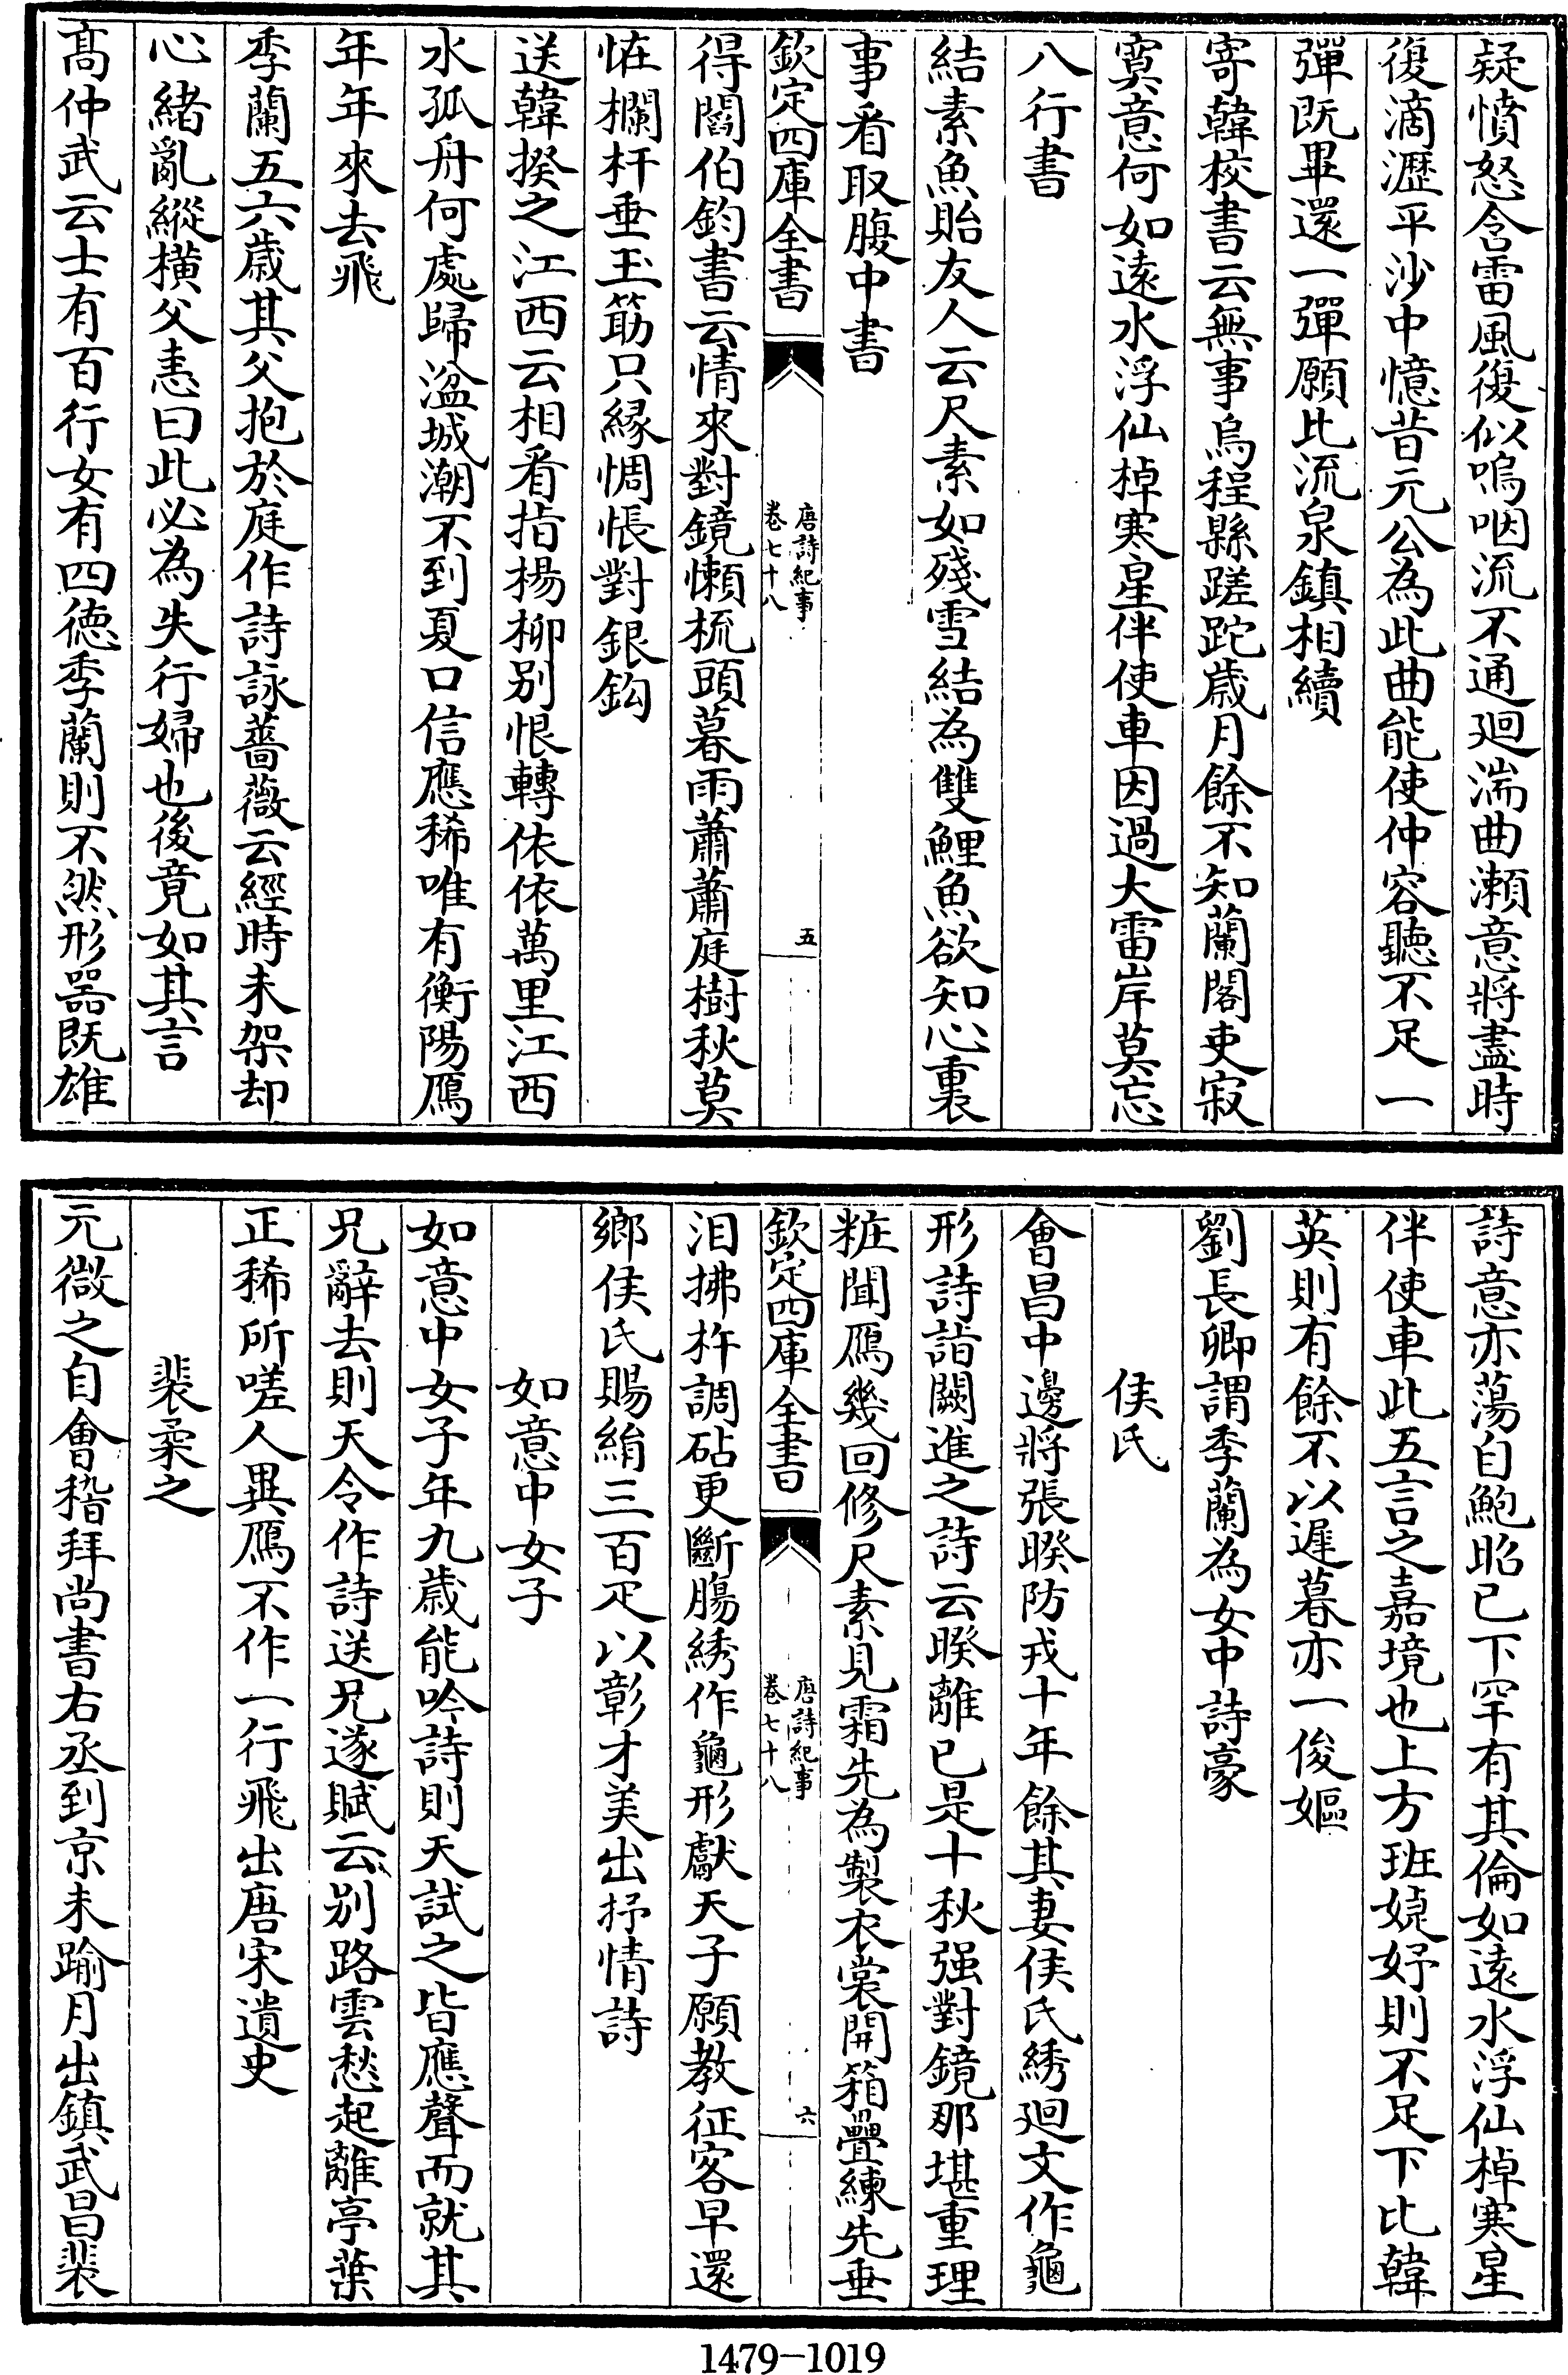 疑憤怒含雷風復似嗚咽流不通廻湍曲瀨意將盡時
復滴瀝平沙中憶昔元公為此曲能使仲容聽不足一
彈既畢還一彈願比流泉鎮相續
寄韓校書云無事烏程縣蹉跎歲月餘不知蘭閣吏寂
寞意何如遠水浮仙棹寒星伴使車因過大雷岸莫忘
八行書
結素魚貽友人云尺素如殘雪結為雙鯉魚欲知心裏
事看取腹中書
欽定四庫全書
唐詩紀事
卷七十八
五
得閻伯鈞書云情來對鏡懶梳頭暮雨蕭蕭庭樹秋莫
恠欄杆垂玉筯只縁惆悵對銀鈎
送韓揆之江西云相看指楊柳别恨轉依依萬里江西
水孤舟何處歸湓城潮不到夏口信應稀唯有衡陽鴈
年年來去飛
季蘭五六歲其父抱於庭作詩詠薔薇云經時未架却
心緒亂縱橫父恚曰此必為失行婦也後竟如其言
髙仲武云士有百行女有四徳季蘭則不然形器既雄
詩意亦蕩自鮑昭已下罕有其倫如遠水浮仙棹寒星
伴使車此五言之嘉境也上方班婕妤則不足下比韓
英則有餘不以遲暮亦一俊嫗
劉長卿謂季蘭為女中詩豪
侯氏
會昌中邊將張暌防戎十年餘其妻侯氏綉廻文作龜
形詩詣闕進之詩云暌離已是十秋强對鏡那堪重理
粧聞鴈幾回修尺素見霜先為製衣裳開箱疊練先垂
欽定四庫全書
唐詩紀事
卷七十八
六
泪拂杵調砧更斷腸綉作龜形獻天子願教征客早還
鄉侯氏賜絹三百疋以彰才美出抒情詩
如意中女子
如意中女子年九歲能吟詩則天試之皆應聲而就其
兄辭去則天令作詩送兄遂賦云别路雲愁起離亭葉
正稀所嗟人異鴈不作一行飛出唐宋遺史
裴柔之
元微之自會稽拜尚書右丞到京未踰月出鎮武昌裴
1479-1019